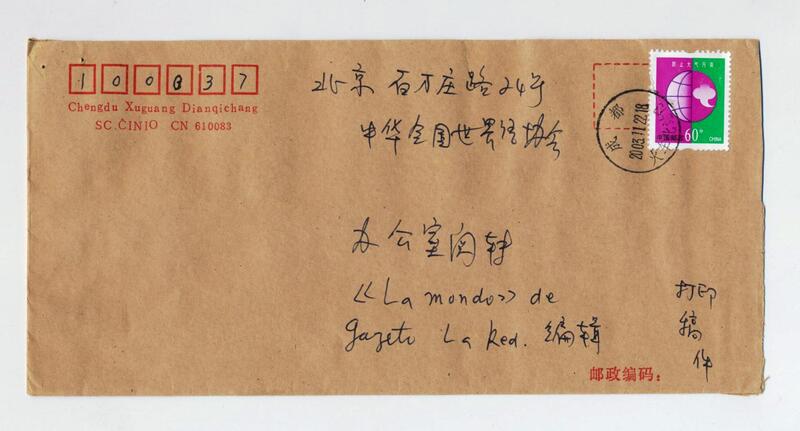 100037
Chengdu Xuguang Dianqichang
SC.ĈINIO CN 610083
北京百万庄路24号
中华全国世界语协会
办公室阅转
《La mondo》de
gazeto La Red. 编辑
打印
稿
件
邮政编码：
防止大气污染
中国邮政
60分
CHINA
成都
2003.11.22.18